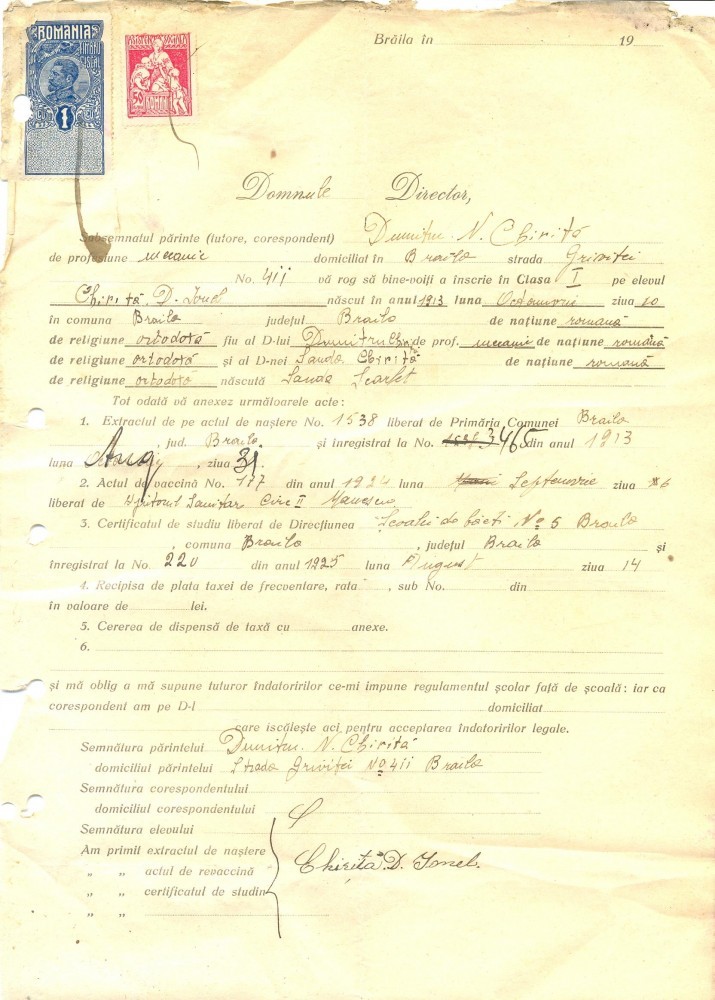 ROMÂNIA
TIMBRU FISCAL
1
50
Brăila în 19
Domnule Director,
Subsemnatul părinte (tutore, corespondent) Dumitru N. Chiriță
de profesiune mecanic domiciliat în Braila strada Griviței
No. 411 vă rog să bine-voiți a înscrie în Clasa I pe elevul
Chiriță D. Ionel născut în anul 1913 luna Octomvrie ziua 20
în comuna Braila județul Braila de națiune romană
de religiune ortodotă fiu al D-lui Dumitru Chiriță de prof. mecanic de națiune romană
de religiune ortodotă și al D-nei Sanda Chiriță de națiune romană
de religiune ortodotă născută Sanda Scarlet
Tot odată vă anexez următoarele acte :
1. Extractul de pe actul de naștere No. 1538 liberat de Primăria Comunei Braila
, jud. Braila și înregistrat la No. 3465 din anul 1913
luna Aug , ziua 31.
2. Actul de vaccină No. 177 din anul 1924 luna Septemvrie ziua 6
liberat de Sanitar Circ II Manescu
3. Certificatul de studiu liberat de Direcțiunea Școalei de băeti No 5 Braila
, comuna Braila , județul Braila și
înregistrat la No. 220 din anul 1925 luna August ziua 14
4. Recipisa de plata taxei de frecventare, rata , sub No. din
în valoare de lei.
5. Cererea de dispensă de taxă cu anexe.
6.
și mă oblig a mă supune tuturor îndatoririlor ce-mi impune regulamentul școlar față de școală : iar ca
corespondent am pe D-l domiciliat
care iscălește aci pentru acceptarea îndatoririlor legale.
Semnătura părintelui Dumitru N. Chiriță
domiciliul părintelui Strada Griviței No 411 Braila
Semnătura corespondentului
domiciliul corespondentului
Semnătura elevului
Am primit extractul de naștere
„ „ actul de revaccină Chiriță D. Ionel.
„ „ certificatul de studin
„ „